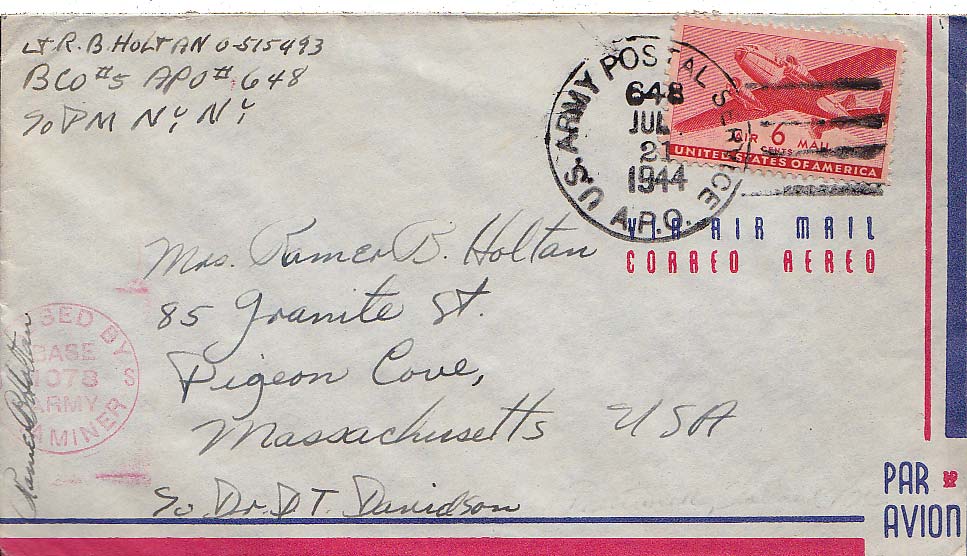 Lt R. B. Holtan O-515493
BCO #5 APO # 648
c/o PM NY, NY
U.S. ARMY POSTAL SERVICE
648
JUL
21
1944
A.P.O.
AIR 6 MAIL
CENTS
UNITED STATES OF AMERICA
VIA AIR MAIL
CORREO AEREO
Mrs. Ramer B. Holtan
85 Granite St.
Pigeon Cove,
Massachusetts USA
c/o Dr. D T. Davidson
SED BY
BASE
1078
ARMY
MINER S
Ramer B Holtan
PAR
AVION